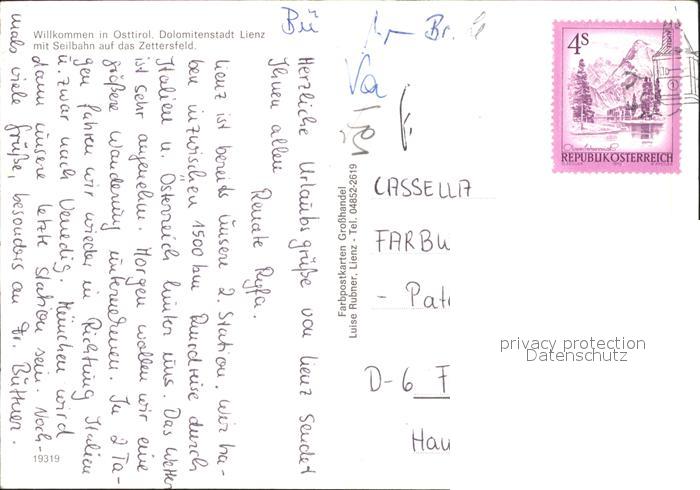 Willkommen in Osttirol. Dolomitenstadt Lienz
mit Seilbahn auf das Zettersfeld.
Herzliche Urlaubsgrüße von Lienz sendet
Ihnen allen
Renate
Lienz ist bereits unsere 2. Station. Wir ha-
ben inzwischen 1500 km Rundreise durch
Italien u. Österreich hinter uns. Das Wetter
ist sehr angenehm. Morgen wollen wir eine
größere Wanderung unternehmen. In 2 Ta-
gen fahren wir wieder in Richtung Italien
u. zwar nach Venedig. München wird
dann unsere letzte Station sein. Noch-
mals viele Grüße, besonders an Dr. Büttner.
19319
Farbpostkarten Großhandel
Luise Rubner, Lienz - Tel. 04852-2619
Bü
Br.
4S
REPUBLIK ÖSTERREICH
CASSELLA
FARBW
- Pat
D-6 F
Hau
privacy protection
Datenschutz